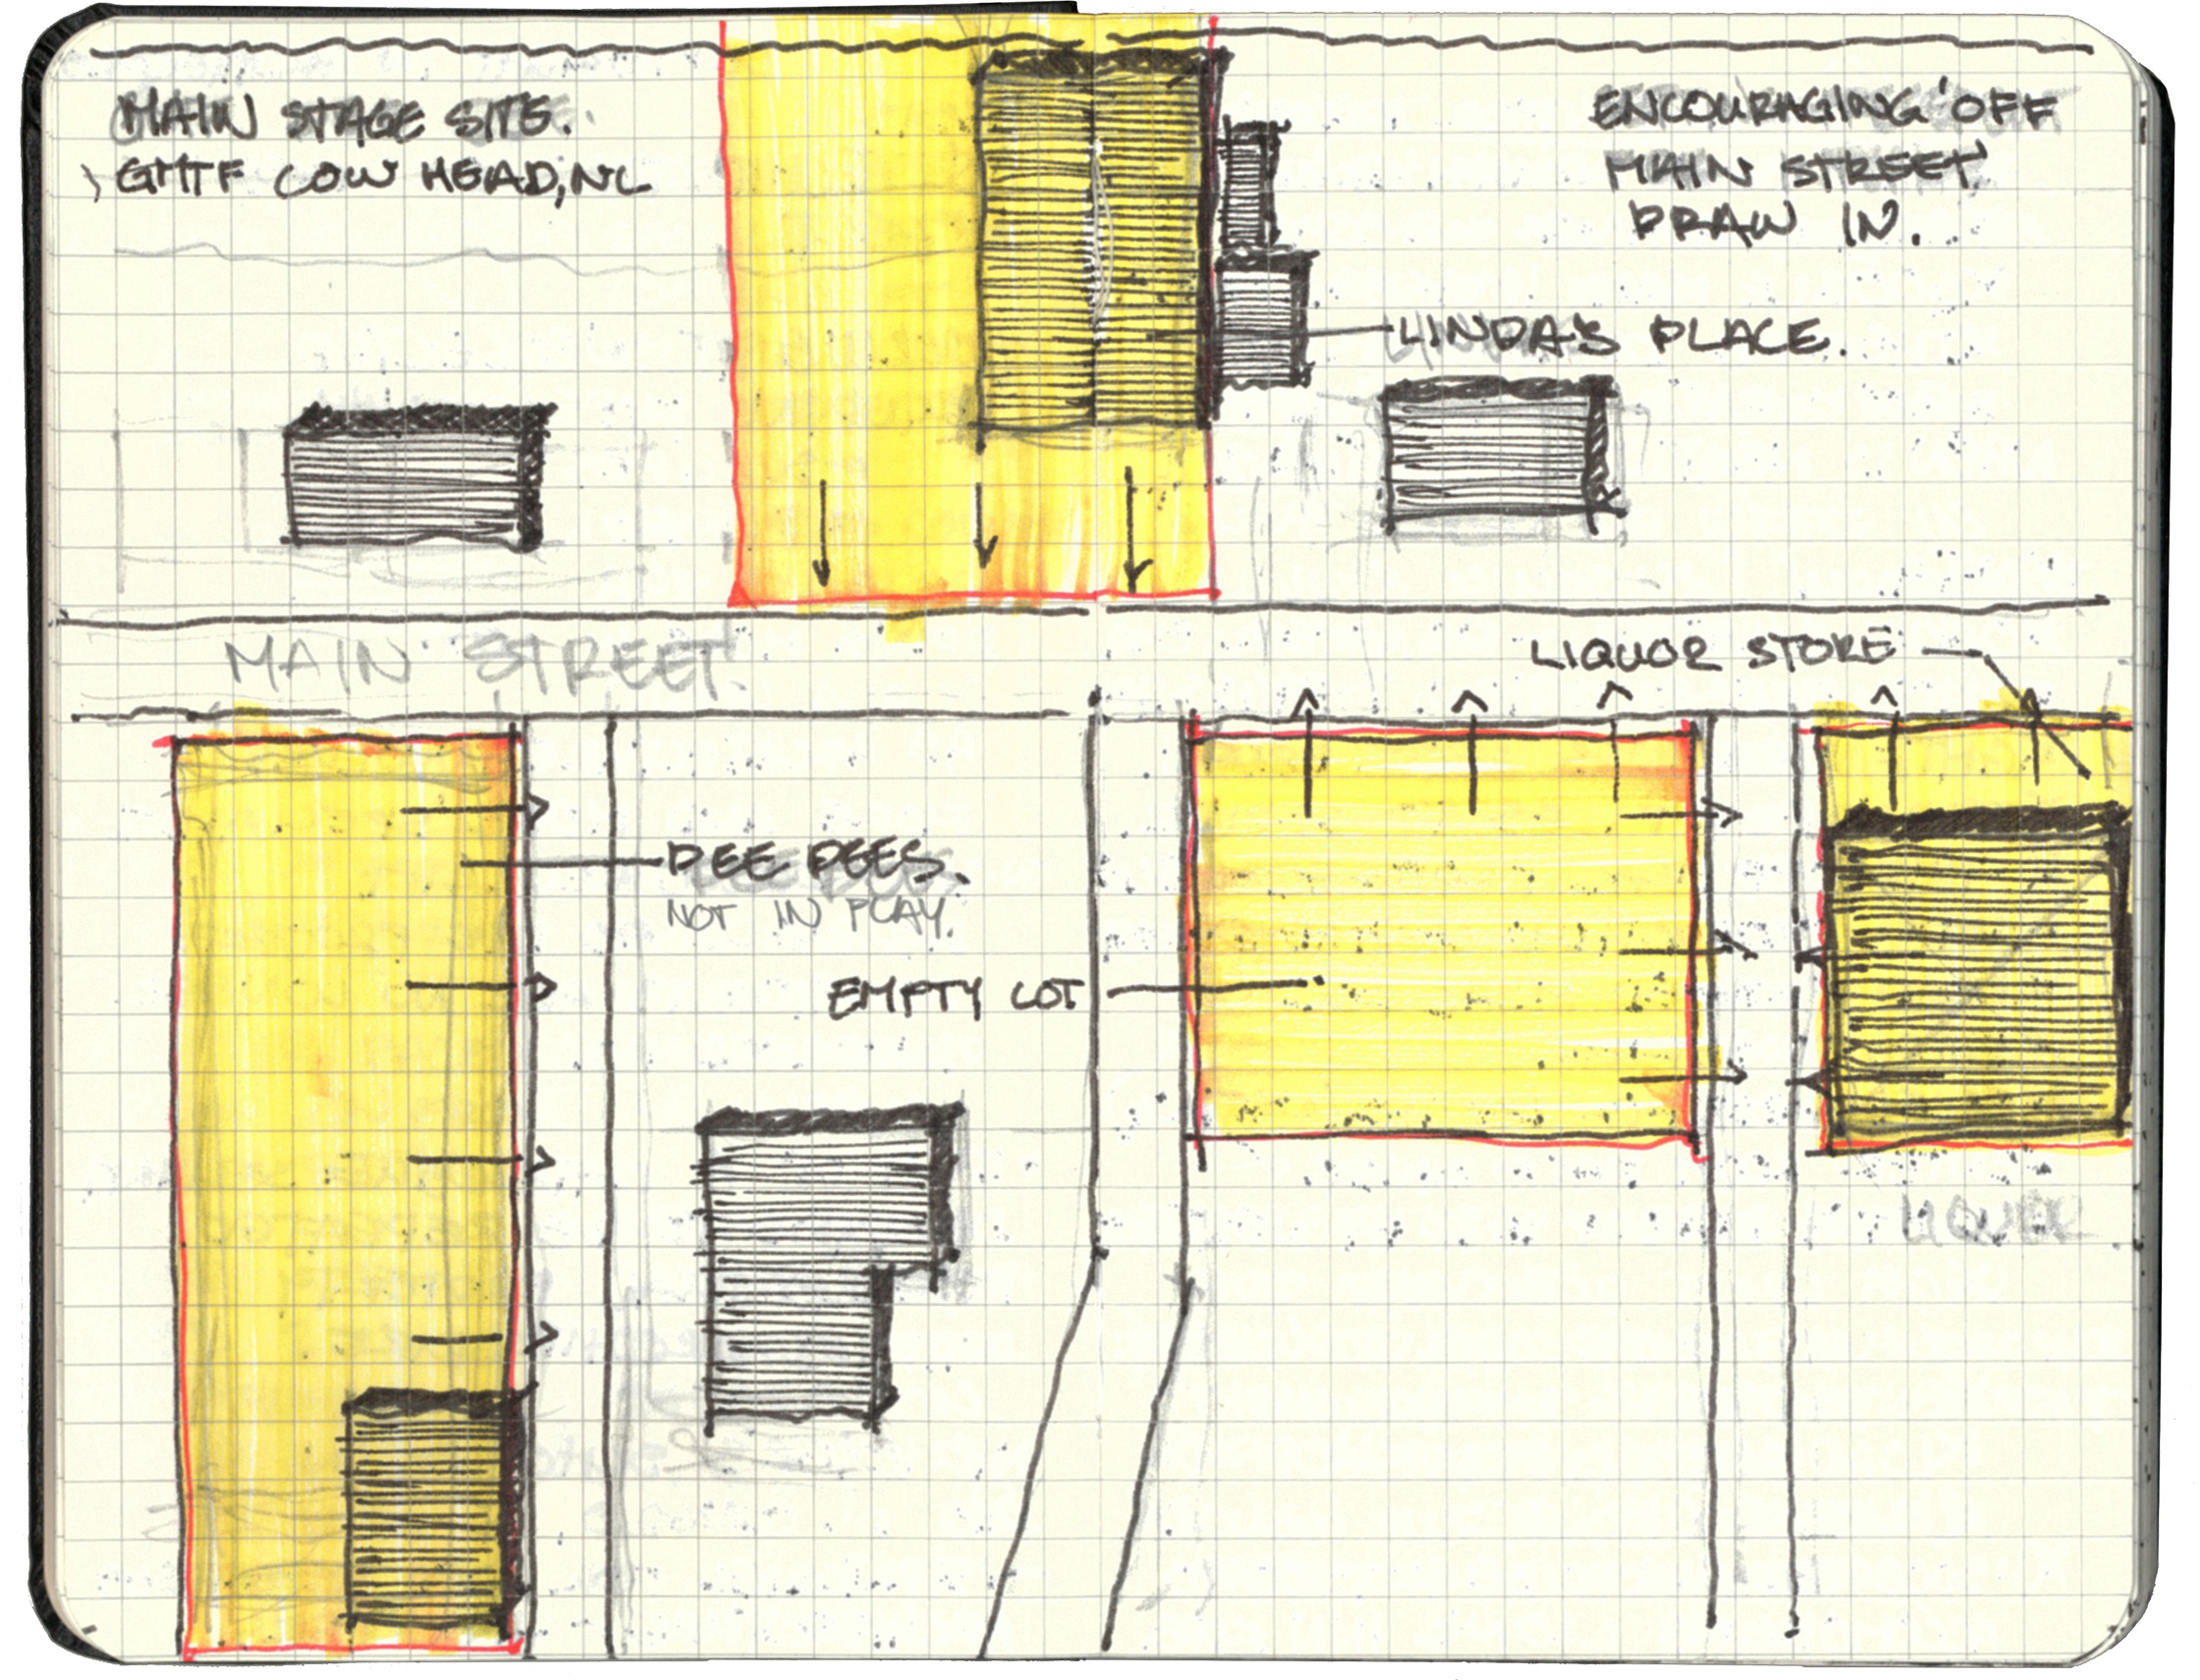 MAIN STAGE SITE.
GMTF COW HEAD, NL
ENCOURAGING 'OFF
MAIN STREET'
DRAW IN.
LINDA'S PLACE.
MAIN STREET.
LIQUOR STORE
DEE DEES.
NOT IN PLAY.
EMPTY LOT
LIQUOR